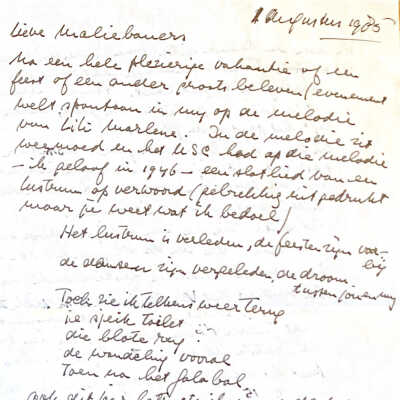 1 Augustus 1985
Lieve Maliebaners
Na een hele plezierige vakantie of een
feest of een ander groots beleven/evenement
welt spontaan in mij op de melodie
van Lili Marlene. In de melodie zit
weemoed en het USC had op die melodie
- ik geloof in 1946 - een slotlied van een
lustrum op verwoord (gebrekkig uitgedrukt
maar je weet wat ik bedoel)
Het lustrum is verleden, de feesten zijn voor-
bij
de dansen zijn vergeleden, de droom
tussen jou en mij
Toch zie ik telkens weer terug
je sjiek toilet
die blote rug!
de wandeling vooral
Toen na het galabal